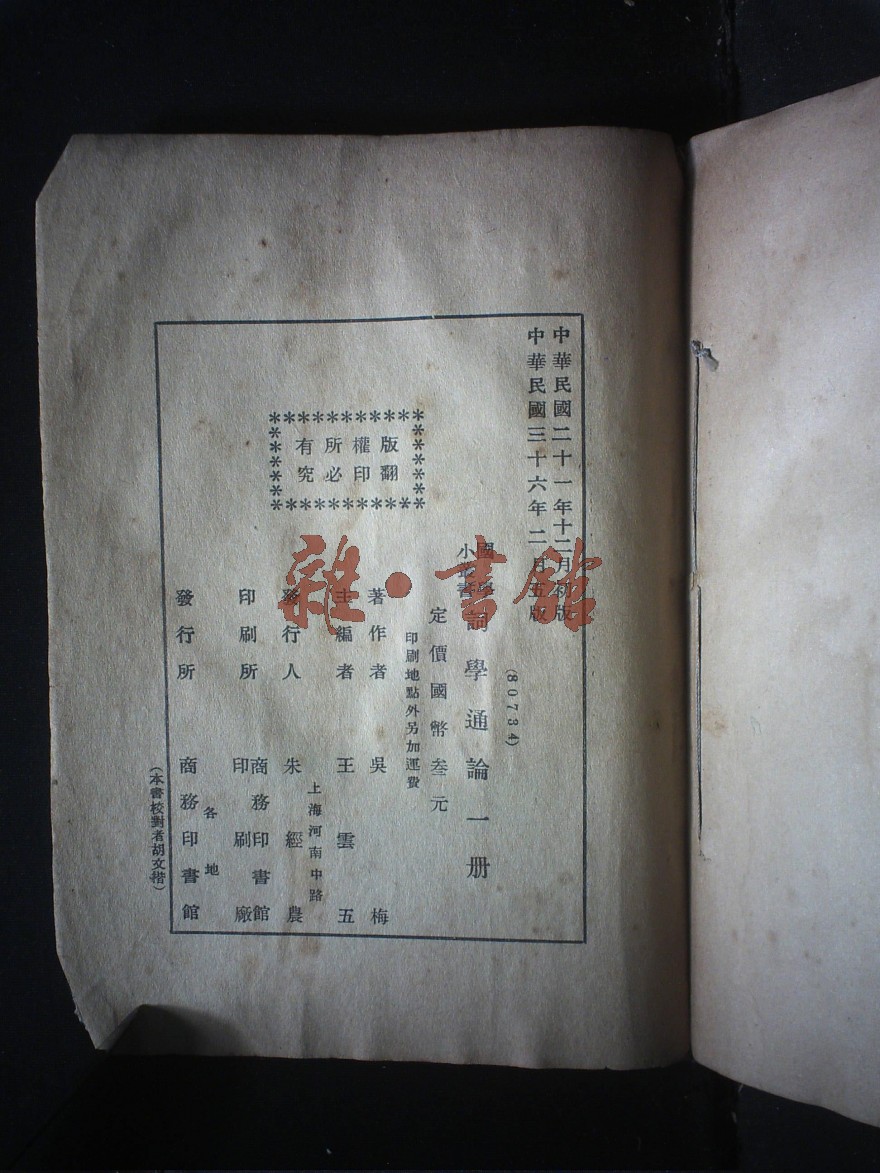 中華民國二十一年十二月初版
中華民國三十六年二月五版
(80734)
國學小叢書
詞學通論一册
定價國幣叁元
印刷地點外另加運費
版權所有
翻印必究
著作者 吳梅
主編者 王雲五
上海河南中路
發行人 朱經農
印刷所 商務印書館印刷廠
各地
發行所 商務印書館
(本書校對者胡文楷)
雜·書館